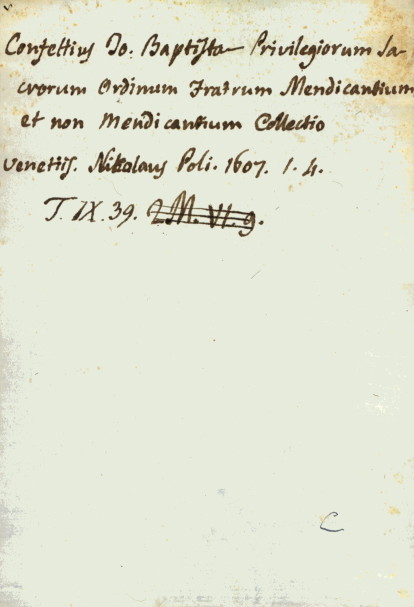 Confettius Jo. Baptista Privilegiorum Sa-
crorum Ordinum Fratrum Mendicantium
et non Mendicantium Collectio
Venetiis. Nikolaus Poli. 1607. 1. 4.
T. IX. 39. 2M. VI. 9.
C